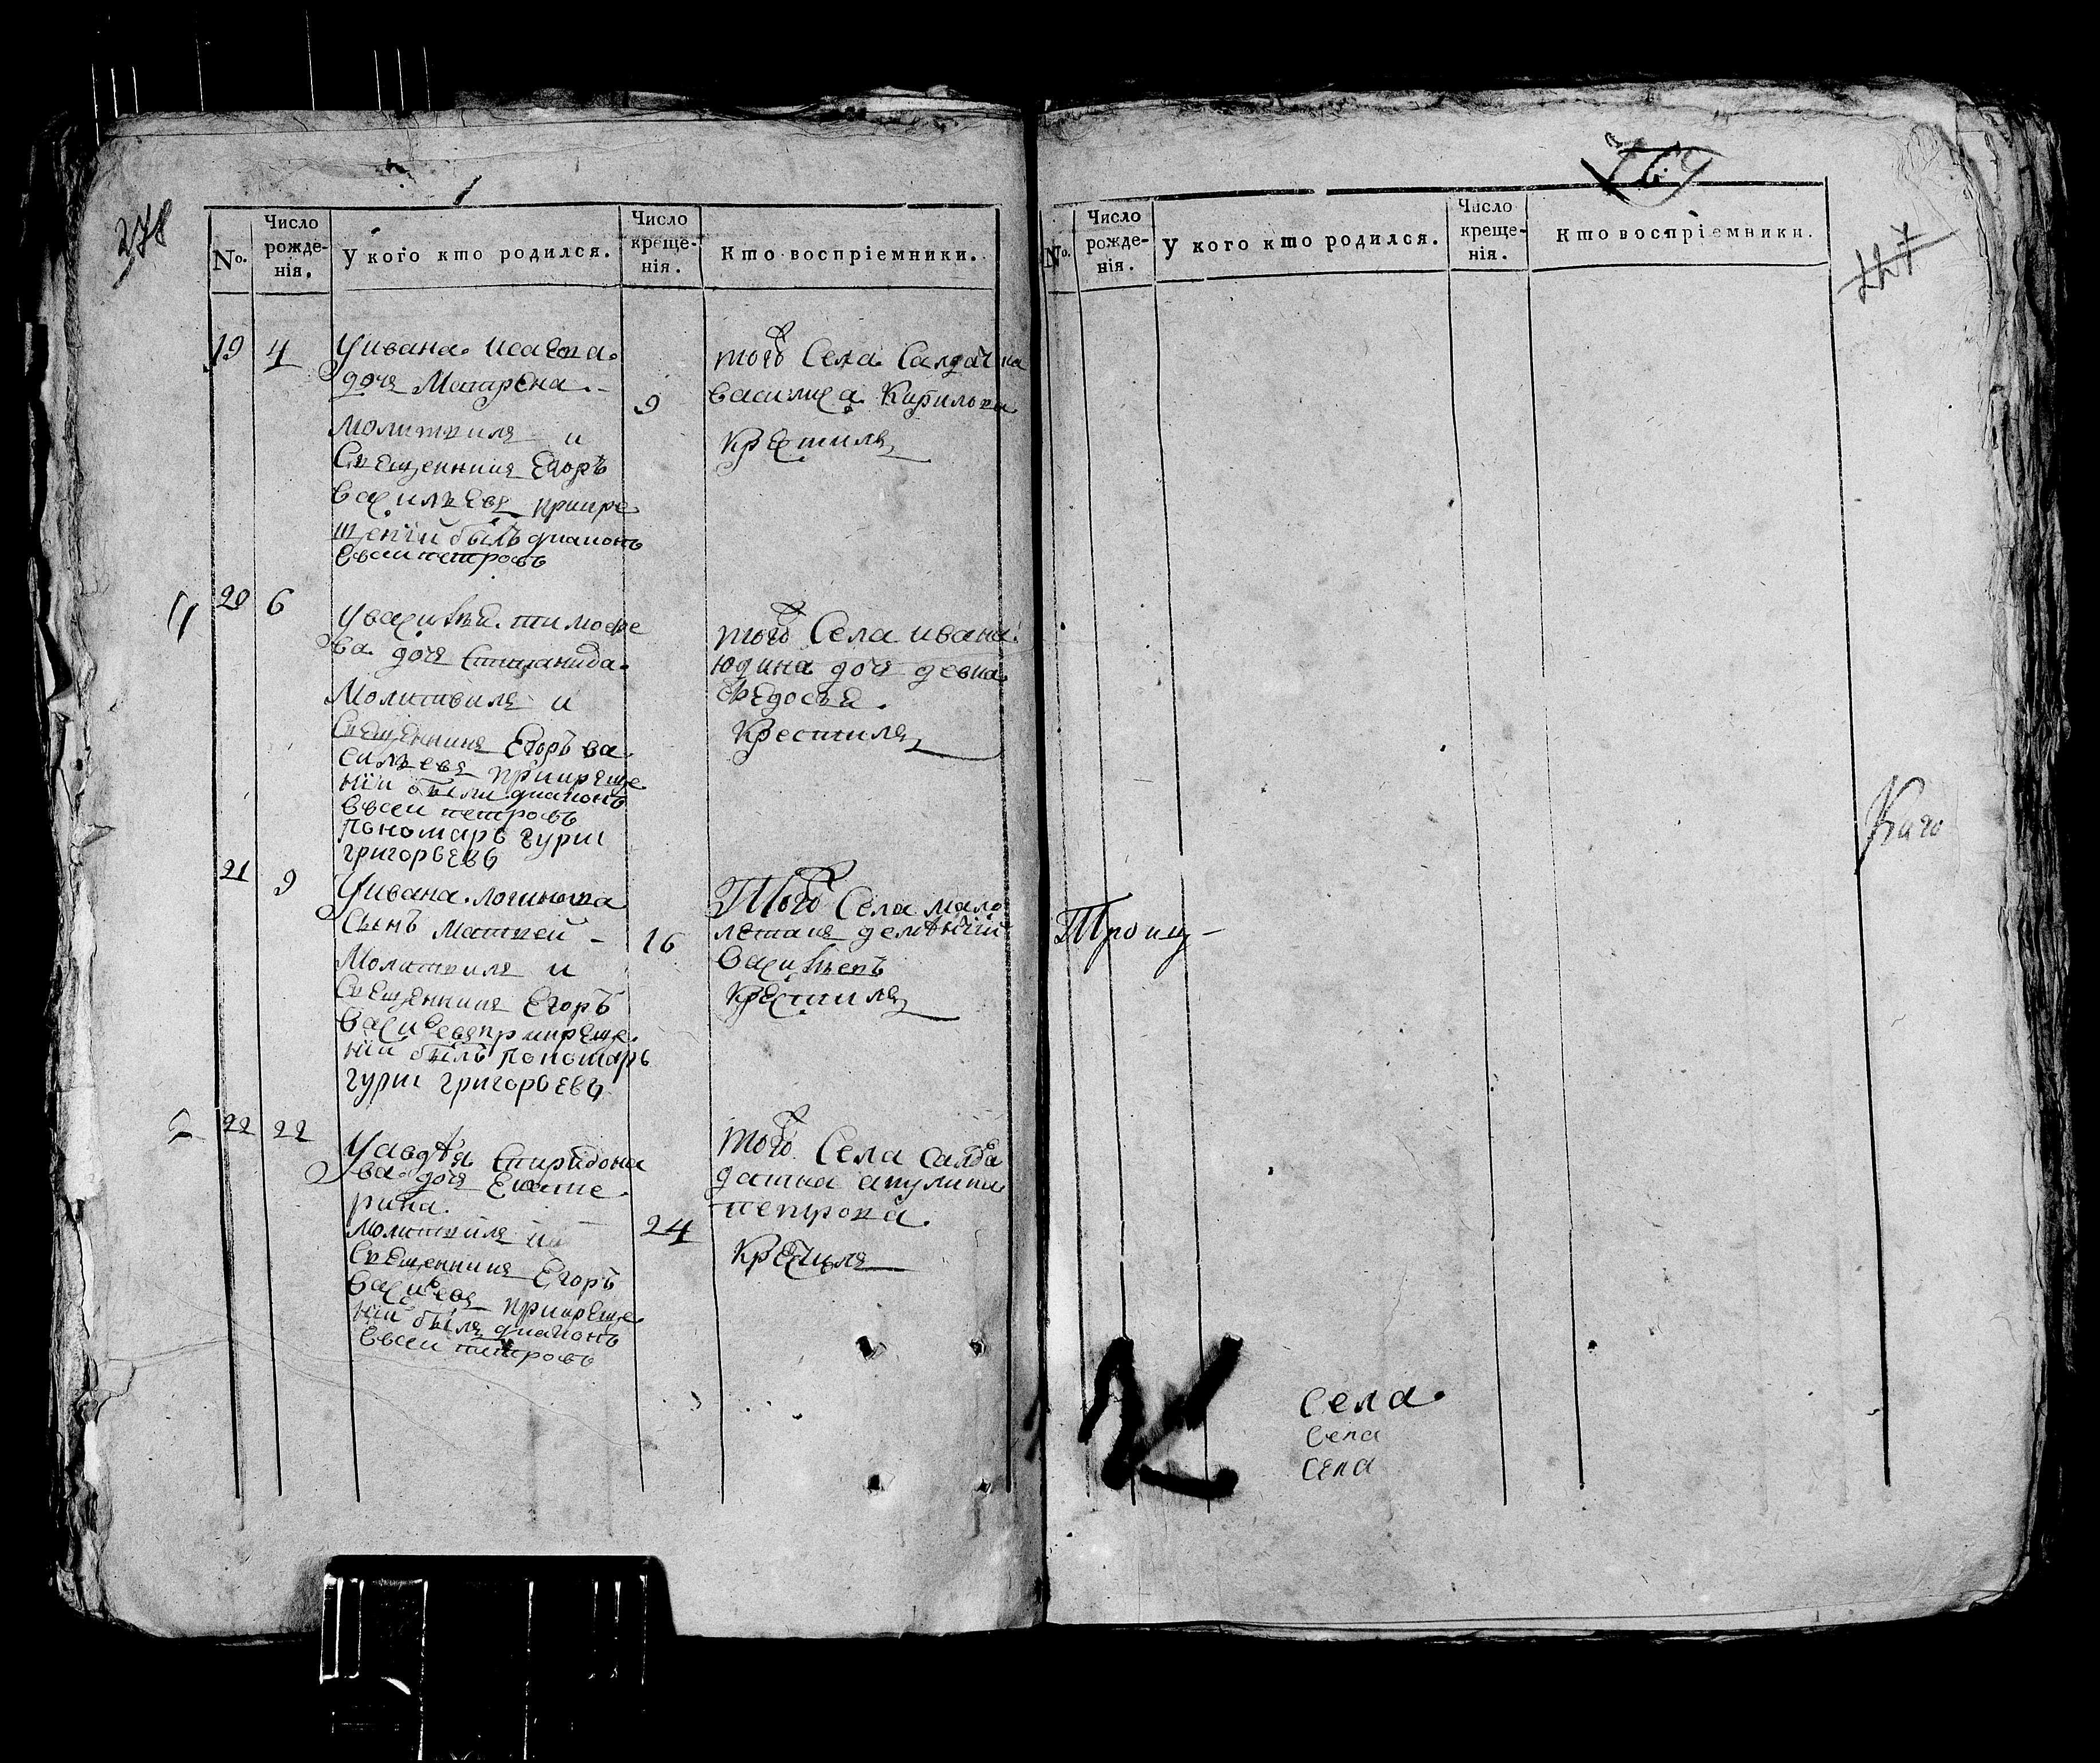 278
№.
Число рожденія.
У кого кто родился.
Число крещенія.
Кто воспріемники.
19 4
Уивана Исаева
дочя Матрена
9
молитвиля и
Священникя Егоръ
Васильевя прикре
щенїи былъ диаконъ
Евсеи петровъ
того Села Салдатка
василиса Кирилова
Крестиля
20 6
Увасилья тимофе
ва дочя Степанида
Молитвиля и
Священникя Егоръ ва
сильевя прикреще
нїи были диаконъ
Евсеи петровъ
пономаръ гурїи
григорьевъ
того Села ивана
юдина дочя девка
Федосья
Крестиля
21 9
Уивана логинова
Сынъ Матвеи
16
Молитвиля и
Священникя Егоръ
Васильевя прикреще
нїи былъ пономаръ
гурїи григорьевъ
Того Села мало
летния деметїи
Васильевъ
Крестиля
22 22
Уавдѣя Спиридоно
ва дочя Екате
рина
24
молитвиля и
Священникя Егоръ
Васильевя прикреще
нїи былъ диаконъ
Евсеи петровъ
того Села салда
датка акулина
петрова
Крестиля
169
227
№.
Число рожденія.
У кого кто родился.
Число крещенія.
Кто воспріемники.
Троиц-
Каго
Села
Села
Села